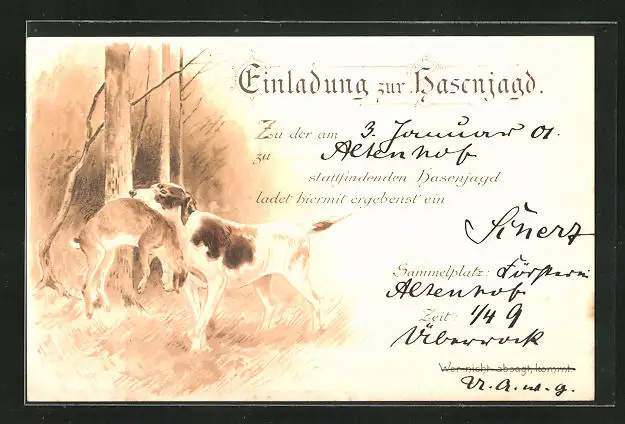 Einladung zur Hasenjagd.
Zu der am 3. Januar 01.
zu Altenhof
stattfindenden Hasenjagd
ladet hiermit ergebenst ein
Sammelplatz: Försterei
Altenhof
Zeit: 1/4 9
Überrock
Wer nicht absagt, kommt.
U. A. w. g.